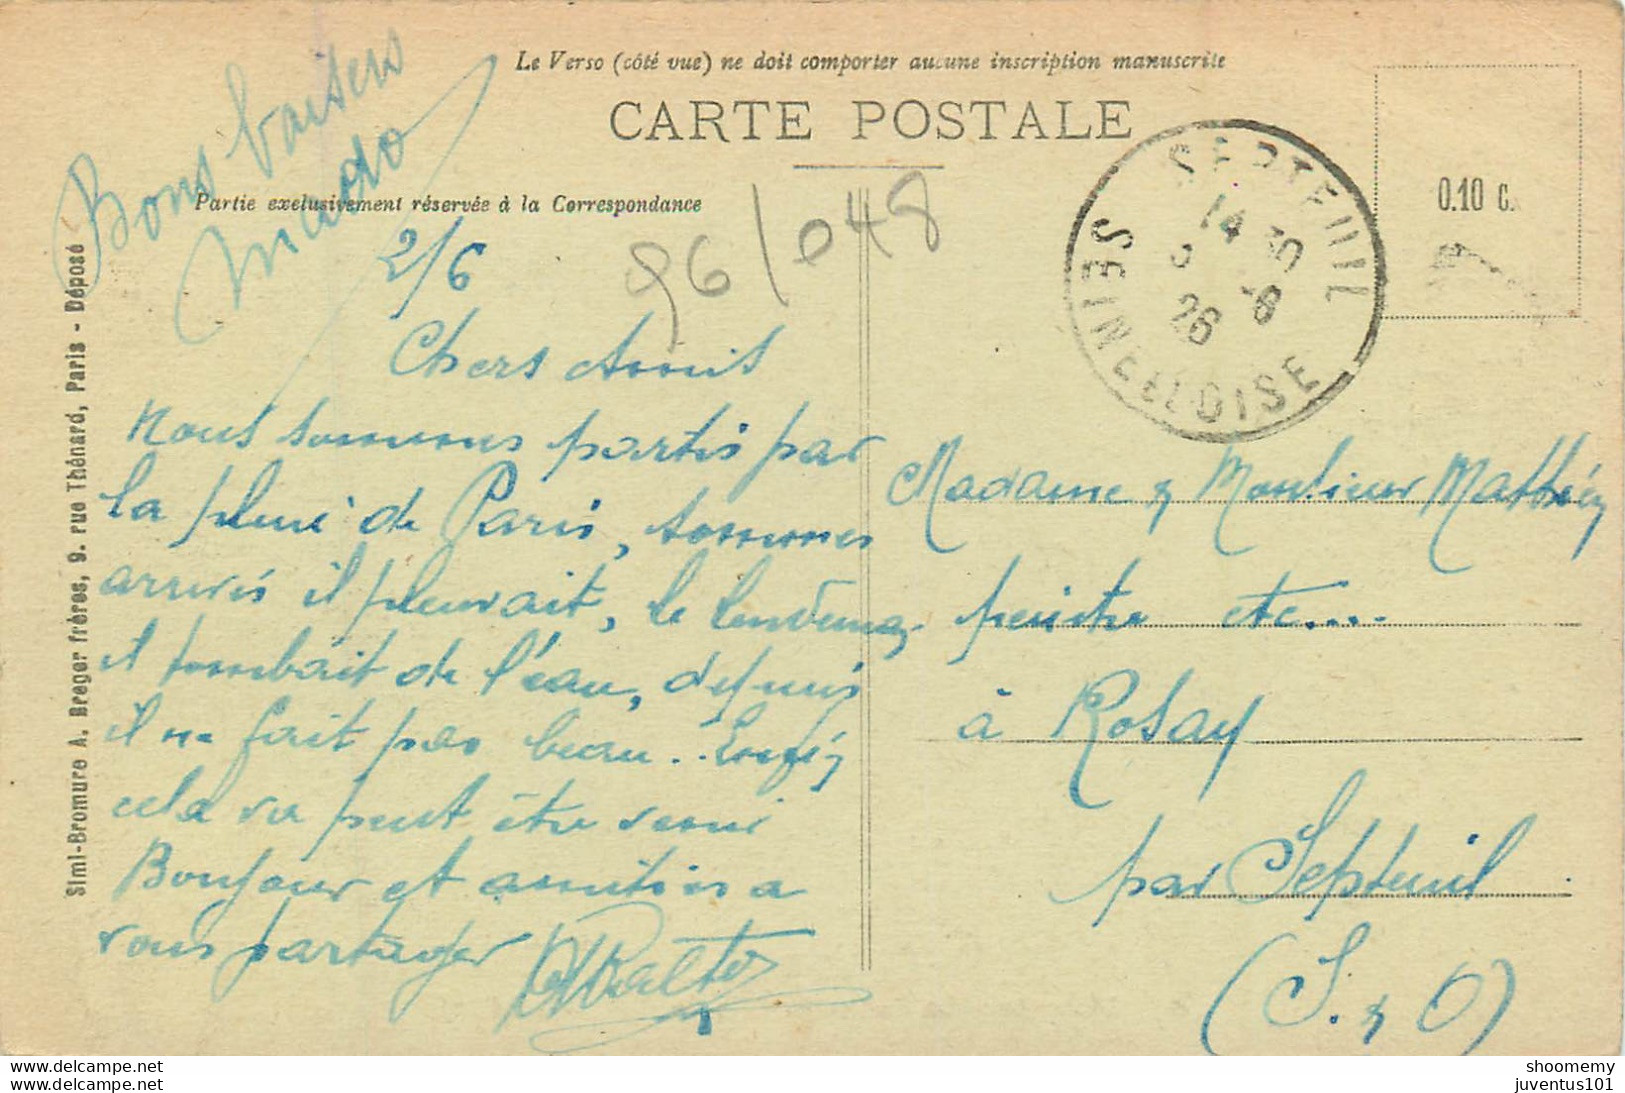 Le Verso (côté vue) ne doit comporter aucune inscription manuscrite
CARTE POSTALE
Partie exclusivement réservée à la Correspondance
0.10 c.
SEPTEUIL
14 30
3 -6
26
SEINE ET OISE
Bons baisers
Mado
96/048
2/6
Chers Amis
Nous sommes partis par
la pluie de Paris, sommes
arrivés il pleuvait, le lendemain
il tombait de l'eau, depuis
il ne fait pas beau.. Enfin
cela va peut être venir
Bonjour et amitiés a
vous partager
Madame & Monsieur Mathieu
peintre etc....
à Rosay
par Septeuil
(S. & O)
Simi-Bromure A. Breger frères, 9. rue Thénard, Paris - Déposé
delcampe.net
juventus101
shoomemy
juventus101